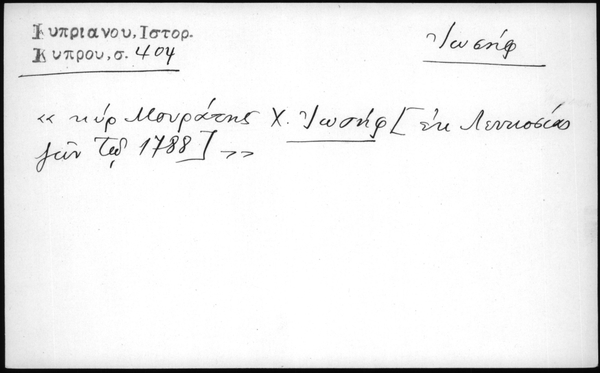 Κυπριανου, Ιστορ.
Κυπρου, σ. 404
Ἰωσήφ
« κύρ Μουράτης Χ. Ἰωσήφ [ἐκ Λευκοσίας
ζῶν τῷ 1788] »